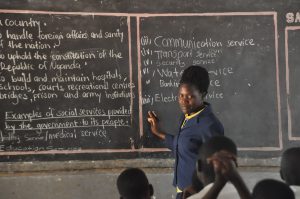 country.
to handle foreign affairs and sanity
of the nation.
to uphold the constitution of the
Republic of Uganda.
to build and maintain hospitals,
Schools, courts, recreational centres
bridges, prison and army institutions
Examples of social services provided
by the government to its people:
medical service
Education
Communication service
Transport service
(v) Security service
Water service
Banking service
Electri service
SA